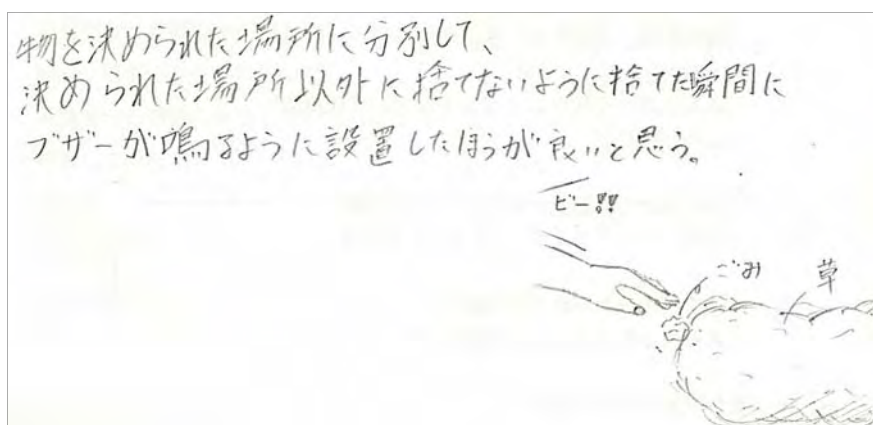 物を決められた場所に分別して、
決められた場所以外に捨てないように捨てた瞬間に
ブザーが鳴るように設置したほうが良いと思う。
ビー!!
ごみ
草